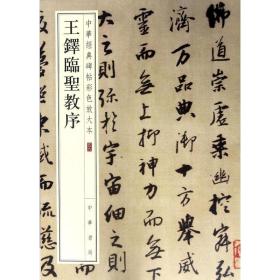 王鐸臨聖教序
中華經典碑帖彩色放大本
中華書局
佛道崇虛乘幽控寂弘
濟萬品典御十方舉威
靈而無上抑神力而無下
大之則弥於宇宙細之則